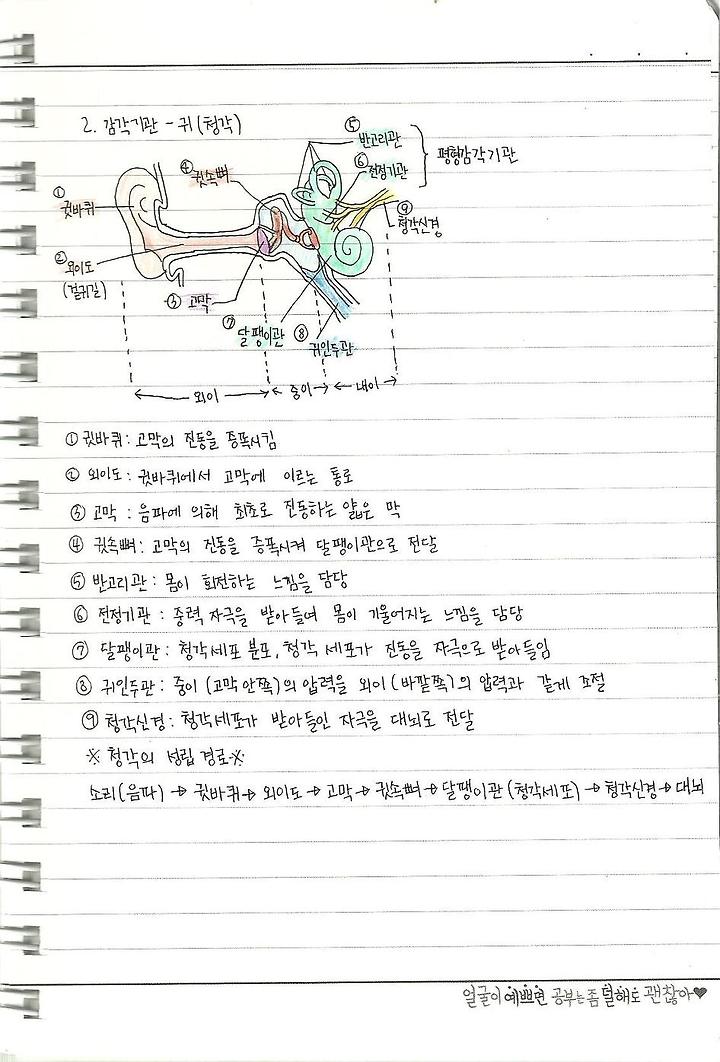 2. 감각기관 - 귀 (청각)
⑤ 반고리관
⑥ 전정기관
평형감각기관
④ 귓속뼈
① 귓바퀴
⑨ 청각신경
② 외이도
(겉귀길)
③ 고막
⑦ 달팽이관
⑧ 귀인두관
외이 중이 내이
① 귓바퀴 : 고막의 진동을 증폭시킴
② 외이도 : 귓바퀴에서 고막에 이르는 통로
③ 고막 : 음파에 의해 최초로 진동하는 얇은 막
④ 귓속뼈 : 고막의 진동을 증폭시켜 달팽이관으로 전달
⑤ 반고리관 : 몸이 회전하는 느낌을 담당
⑥ 전정기관 : 중력 자극을 받아들여 몸이 기울어지는 느낌을 담당
⑦ 달팽이관 : 청각세포 분포, 청각 세포가 진동을 자극으로 받아들임
⑧ 귀인두관 : 중이 (고막 안쪽)의 압력을 외이 (바깥쪽)의 압력과 같게 조절
⑨ 청각신경 : 청각세포가 받아들인 자극을 대뇌로 전달
※ 청각의 성립 경로 ※
소리(음파) → 귓바퀴 → 외이도 → 고막 → 귓속뼈 → 달팽이관 (청각세포) → 청각신경 → 대뇌
얼굴이 예쁘면 공부는 좀 덜해도 괜찮아♥